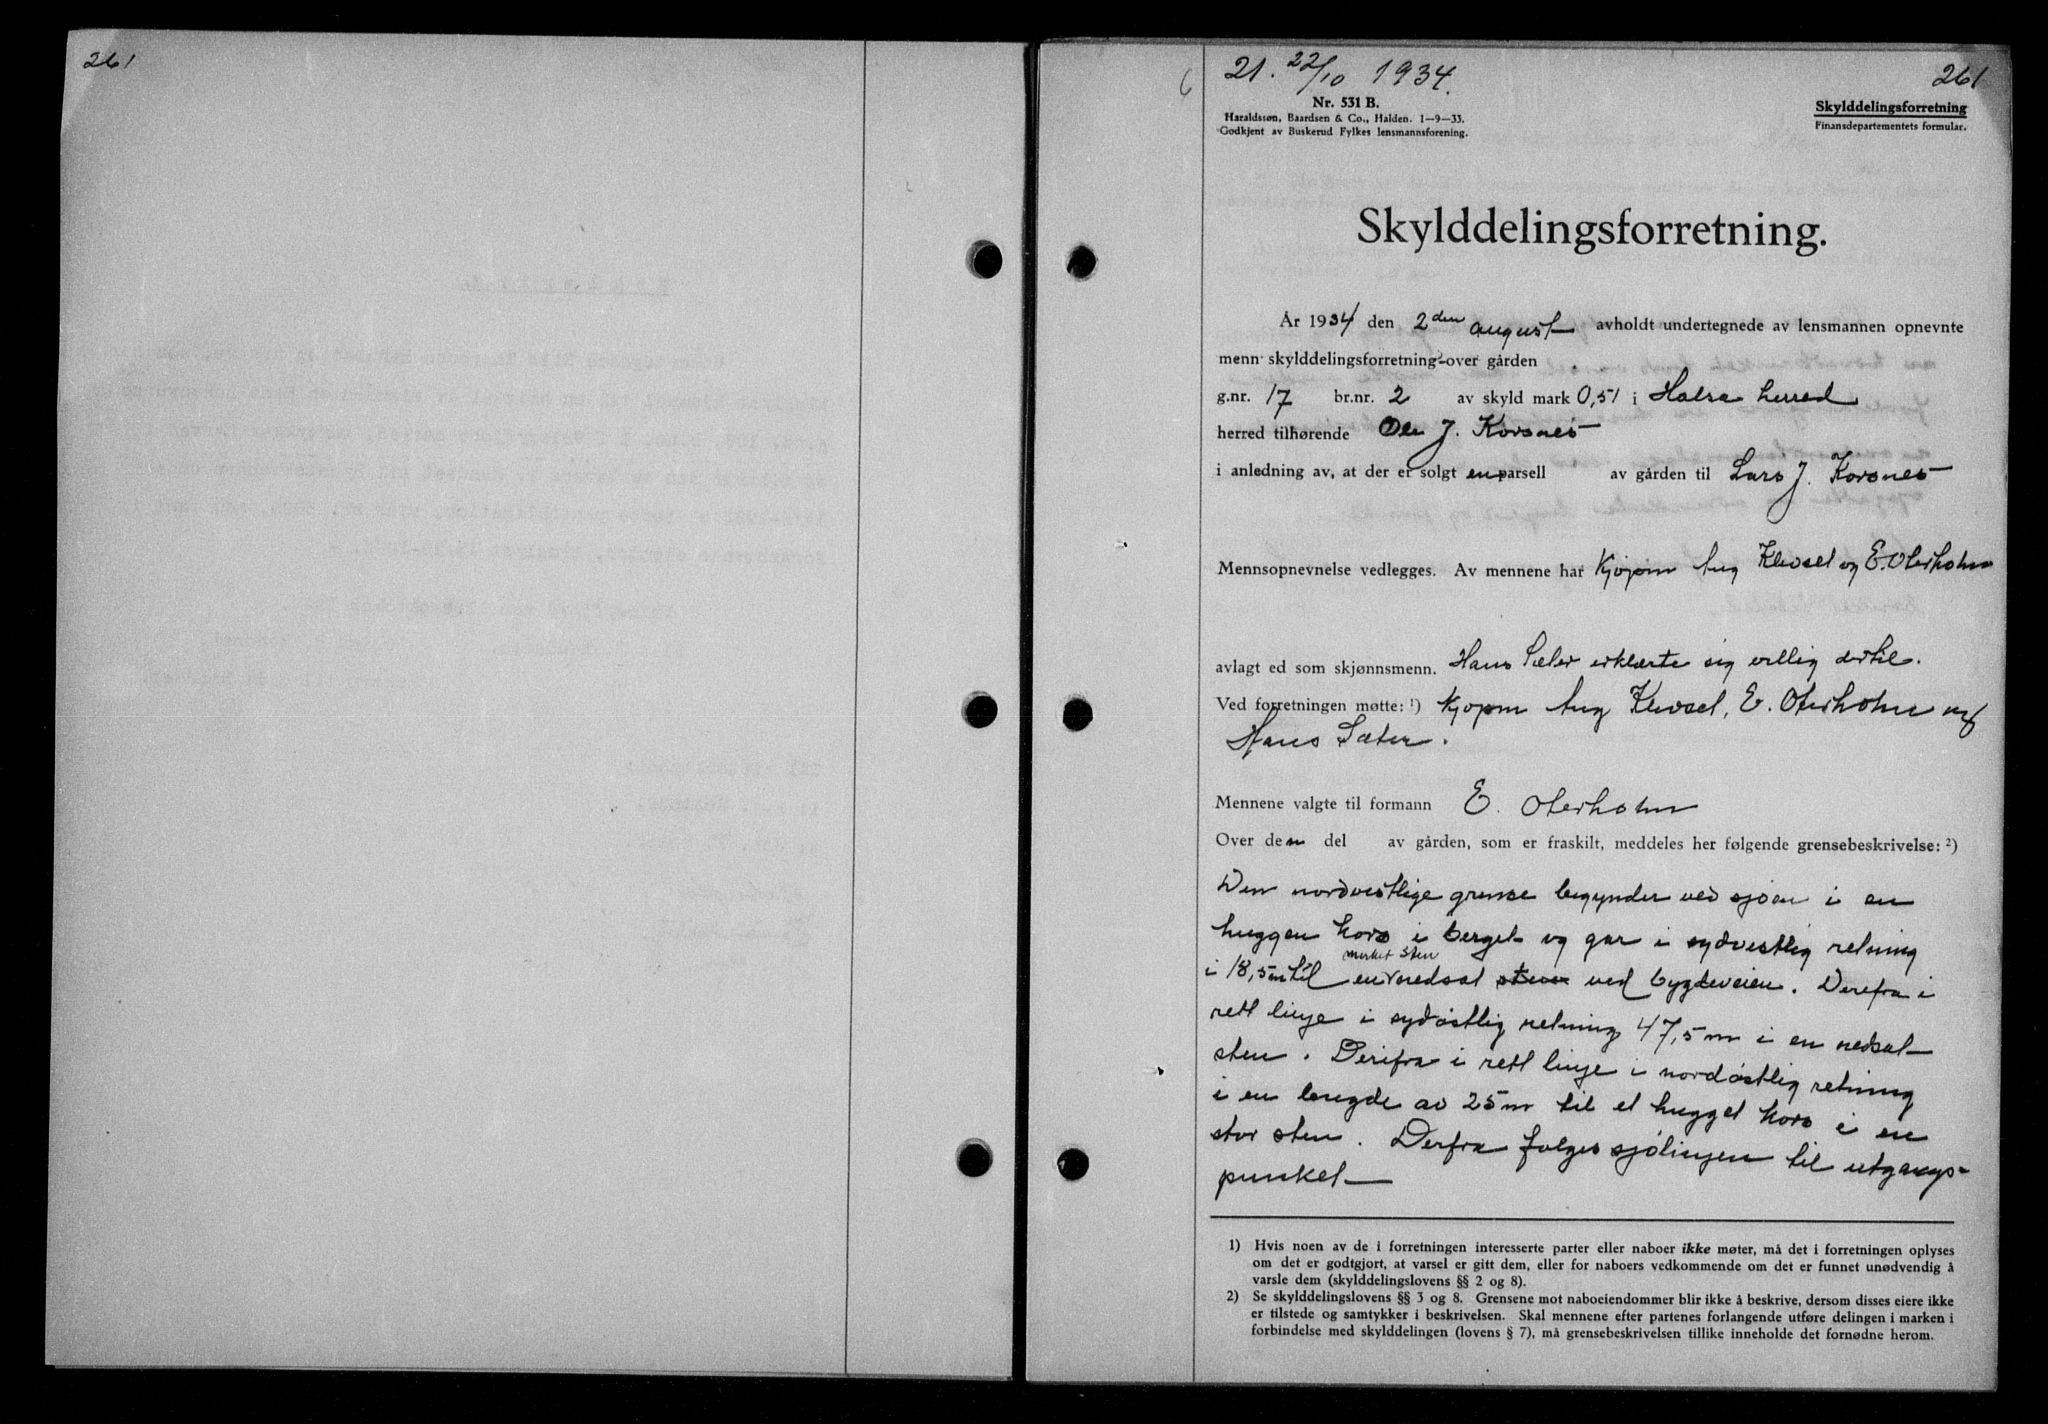 261
21. 22/10 1934.
261
Nr. 531 B.
Haraldssøn, Baardsen & Co., Halden. 1-9-33.
Godkjent av Buskerud Fylkes lensmannsforening.
Skylddelingsforretning
Finansdepartementets formular.
Skylddelingsforretning.
År 1934 den 2den august avholdt undertegnede av lensmannen opnevnte
menn skylddelingsforretning over gården
g.nr. 17 br.nr. 2 av skyld mark 0,51 i Halsa herred
herred tilhørende Ole J. Korsnes
i anledning av, at der er solgt en parsell av gården til Lars J. Korsnes
Mennsopnevnelse vedlegges. Av mennene har Aug Klevset og E. Oterholm
avlagt ed som skjønnsmenn. Hans Sæter erklærte sig villig dertil.
Ved forretningen møtte: 1) Aug Klevset, E. Oterholm og
Hans Sæter.
Mennene valgte til formann E. Oterholm
Over den del av gården, som er fraskilt, meddeles her følgende grensebeskrivelse: 2)
Den nordvestlige grense begynder ved sjøen i en
huggen kors i berget og går i sydvestlig retning
i 18,5 m til en merket sten nedsat sten ved bygdeveien. Derefra i
rett linje i sydøstlig retning 47,5 m i en nedsat
sten. Derifra i rett linje i nordøstlig retning
i en lengde av 25 m til et hugget kors i en
stor sten. Derfra følges sjølinjen til utgangs-
punktet
1) Hvis noen av de i forretningen interesserte parter eller naboer ikke møter, må det i forretningen oplyses
om det er godtgjort, at varsel er gitt dem, eller for naboers vedkommende om det er funnet unødvendig å
varsle dem (skylddelingslovens §§ 2 og 8).
2) Se skylddelingslovens §§ 3 og 8. Grensene mot naboeiendommer blir ikke å beskrive, dersom disses eiere ikke
er tilstede og samtykker i beskrivelsen. Skal mennene efter partenes forlangende utføre delingen i marken i
forbindelse med skylddelingen (lovens § 7), må grensebeskrivelsen tillike inneholde det fornødne herom.